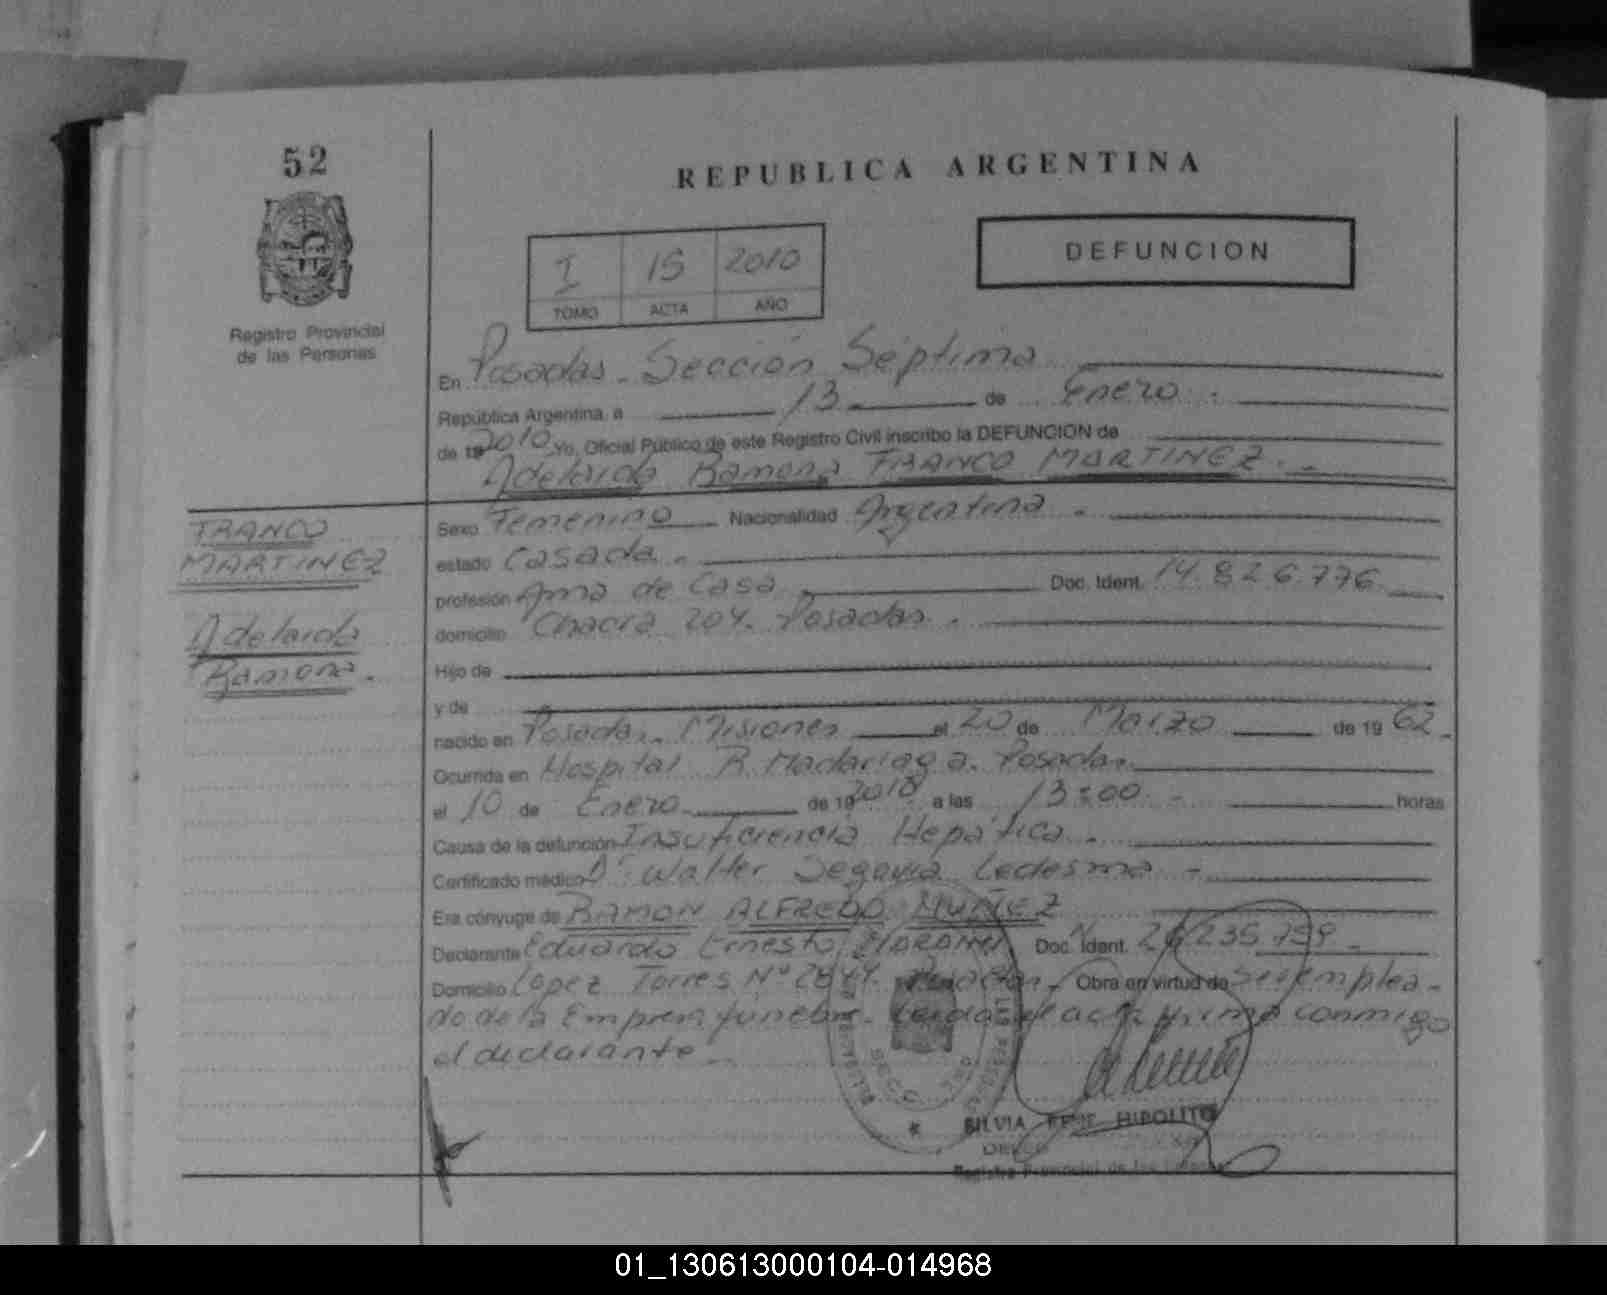 52
REPUBLICA ARGENTINA
DEFUNCION
I 15 2010
TOMO ACTA AÑO
Registro Provincial
de las Personas
En Posadas - Sección Séptima
República Argentina, a 13 de Enero
de 19 2010 Yo, Oficial Público de este Registro Civil inscribo la DEFUNCION de
Adelaida Ramona FRANCO MARTINEZ.-
FRANCO
MARTINEZ
Adelaida
Ramona.
Sexo Femenino Nacionalidad Argentina.
estado Casada.
profesión Ama de Casa Doc. Ident. 14.826.776
domicilio Chacra 204. Posadas.
Hijo de
y de
nacido en Posadas. Misiones el 20 de Marzo de 1962.
Ocurrida en Hospital R. Madariaga. Posadas.
el 10 de Enero de 19 2010 a las 13:00 - horas
Causa de la defunción Insuficiencia Hepática.
Certificado médico Dr Walter Segovia Ledesma -
Era cónyuge de RAMON ALFREDO MUÑEZ
Declarante Eduardo Ernesto Doc. Ident. 26.235.759
Domicilio Lopez Torres Nº Posadas. Obra en virtud de ser emplea-
do de la Empresa funebre. Leida el acta firma conmigo
el declarante.
SILVIA HIPOLITO
Registro Provincial de las Personas
01_130613000104-014968